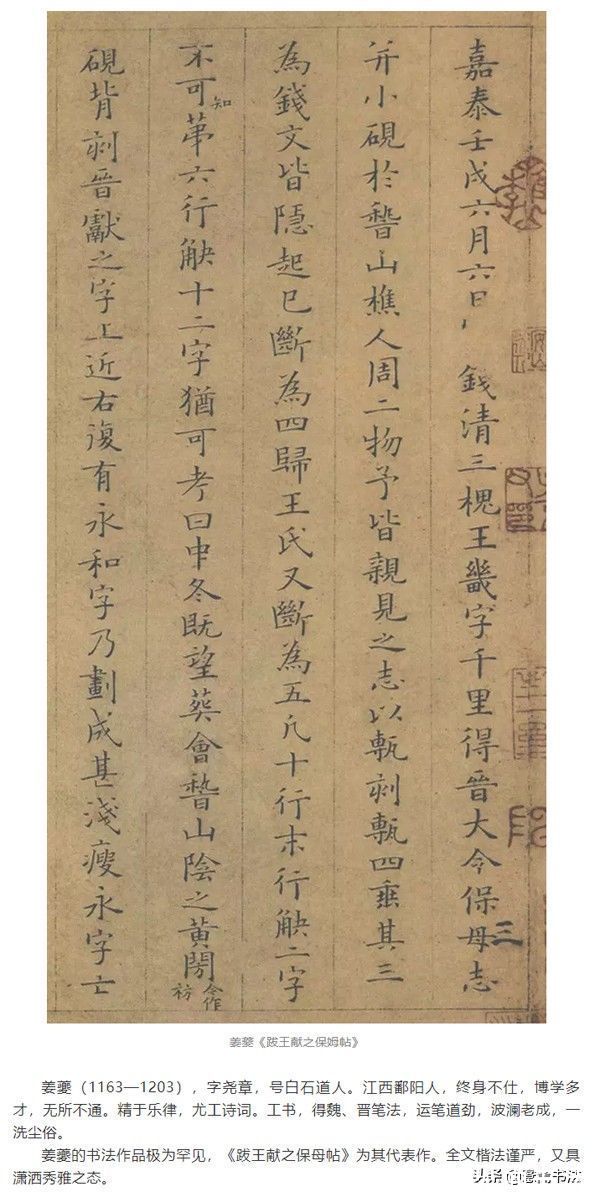 嘉泰壬戌六月六日錢清三槐王畿字千里得晉大令保母志
并小硯於稽山樵人周二物予皆親見之志以甎刻甎四垂其三
為錢文皆隱起已斷為四歸王氏又斷為五凢十行末行缺二字
不可知
苐六行缺十二字猶可考曰中冬既望葬會稽山陰之黃閍
合作
祊
硯背刻晉獻之字上近右復有永和字乃劃成甚淺瘦永字亡
姜夔《跋王献之保姆帖》
姜夔（1163—1203），字尧章，号白石道人。江西鄱阳人，终身不仕，博学多
才，无所不通。精于乐律，尤工诗词。工书，得魏、晋笔法，运笔遒劲，波澜老成，一
洗尘俗。
姜夔的书法作品极为罕见，《跋王献之保母帖》为其代表作。全文楷法谨严，又具
潇洒秀雅之态。